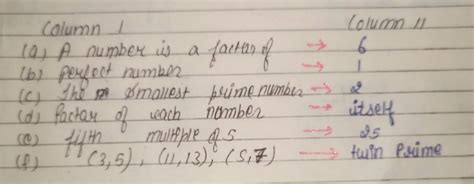 Column I Column II
(a) A number is a factar of → 6
(b) perfect number → 1
(c) The smallest prime number → 2
(d) factar of each number → itself
(e) fifth multiple of 5 → 25
(f) (3,5), (11,13), (5,7) → twin Prime